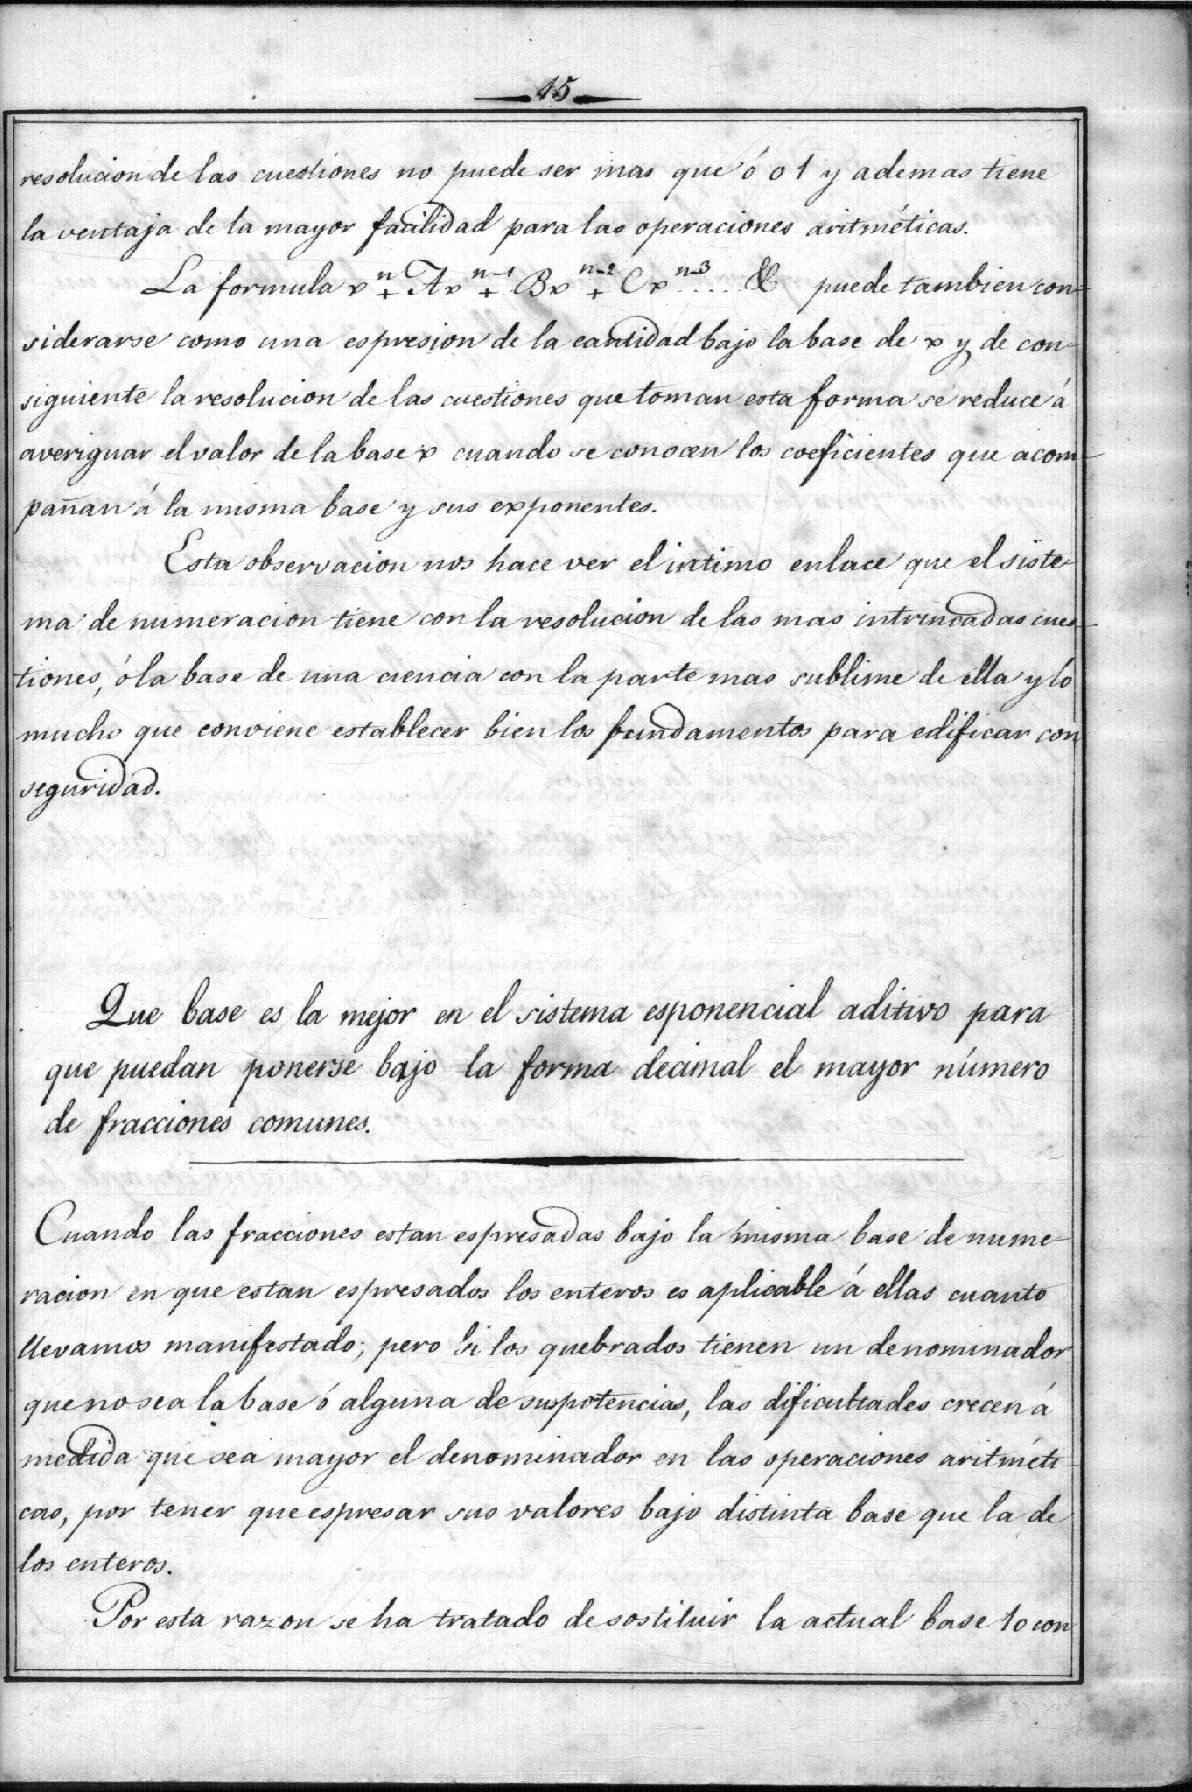 15
resolucion de las cuestiones no puede ser mas que ó 0 1 y ademas tiene
la ventaja de la mayor facilidad para las operaciones aritméticas.
La formula xⁿ + Axⁿ⁻¹ + Bxⁿ⁻² + Cxⁿ⁻³ .... & puede tambien con-
siderarse como una espresion de la cantidad bajo la base de x y de con-
siguiente la resolucion de las cuestiones que toman esta forma se reduce á
averiguar el valor de la base x cuando se conocen los coeficientes que acom-
pañan á la misma base y sus exponentes.
Esta observacion nos hace ver el intimo enlace que el siste-
ma de numeracion tiene con la resolucion de las mas intrincadas cues-
tiones, ó la base de una ciencia con la parte mas sublime de ella y lo
mucho que conviene establecer bien los fundamentos para edificar con
seguridad.
Que base es la mejor en el sistema esponencial aditivo para
que puedan ponerse bajo la forma decimal el mayor número
de fracciones comunes.
Cuando las fracciones estan espresadas bajo la misma base de nume-
racion en que estan espresados los enteros es aplicable á ellas cuanto
llevamos manifestado; pero si los quebrados tienen un denominador
que no sea la base ó alguna de sus potencias, las dificultades crecen á
medida que sea mayor el denominador en las operaciones aritméti
cas, por tener que espresar sus valores bajo distinta base que la de
los enteros.
Por esta razon se ha tratado de sostituir la actual base 10 con